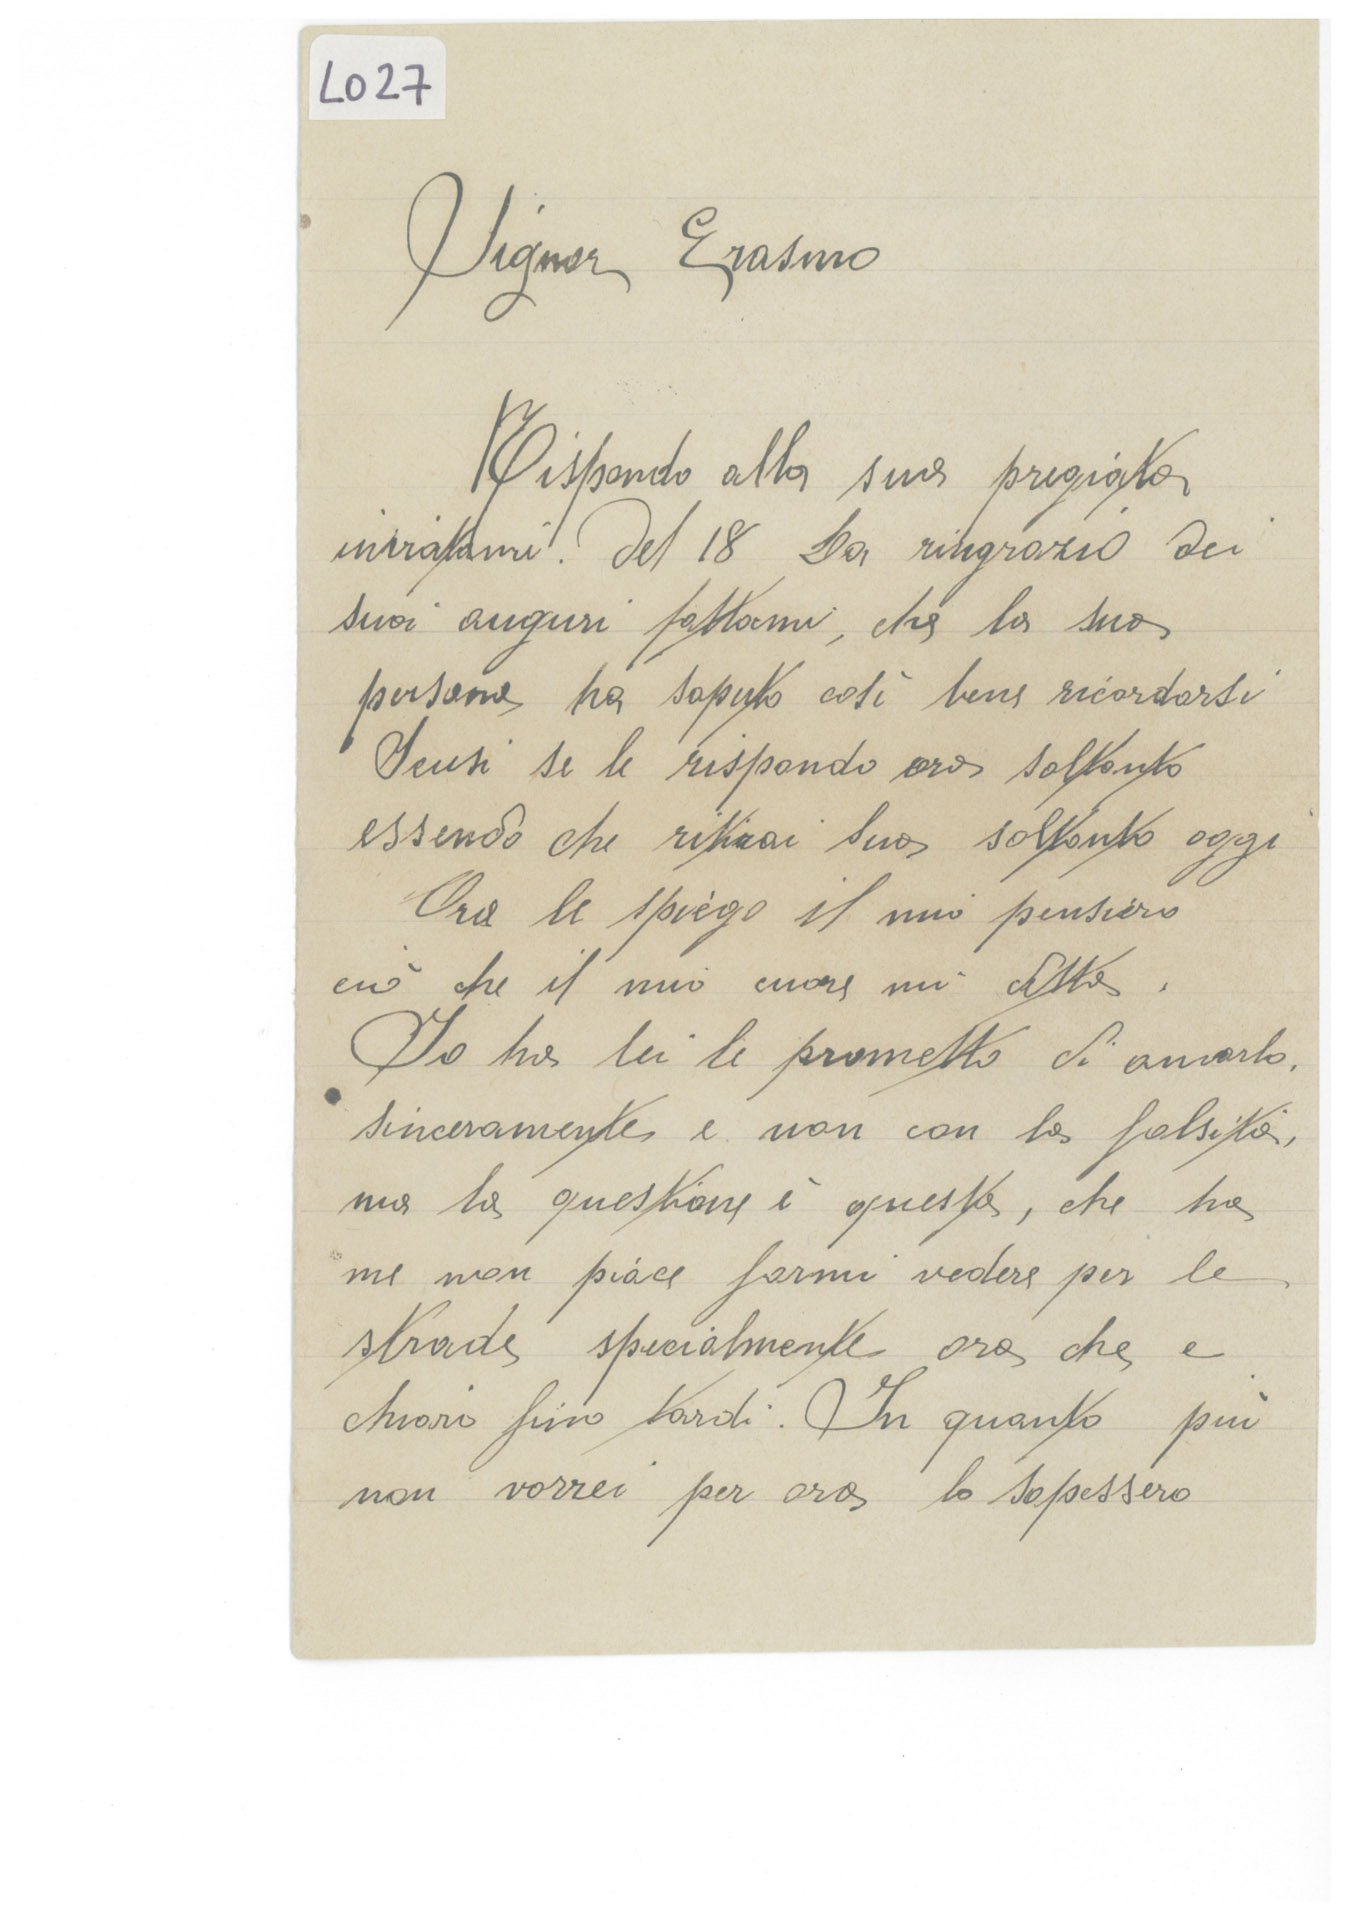 L027
Signor Erasmo
Rispondo alla sua pregiata
inviatami. Del 18 La ringrazio dei
suoi auguri fattami, che la sua
persona ha saputo così bene ricordarsi
Scusi se le rispondo ora soltanto
essendo che ritirai sua soltanto oggi
Ora le spiego il mio pensiero
ciò che il mio cuore mi ditta.
Io ha lei le prometto di amarlo,
sinceramente e non con la falsità,
ma la questione è questa, che ha
me non piace farmi vedere per le
strade specialmente ora che e
chiaro fino tardi. In quanto più
non vorrei per ora lo sapessero